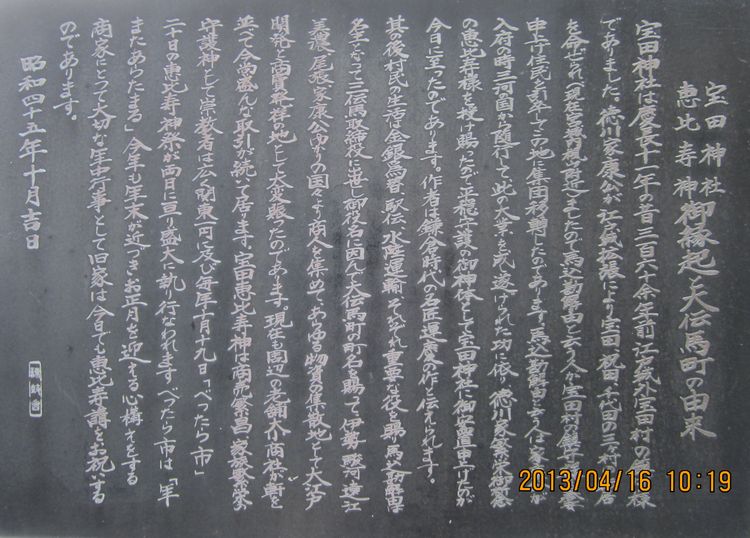 宝田神社
恵比寿神
御縁起と大伝馬町の由来
宝田神社は慶長十一年の昔三百六十余年前江戸城外宝田村の鎮守様
でありました。徳川家康公が江戸城拡張により宝田、祝田、千代田の三村
を命ぜられ（現在宮城内楠公附近）ましたので馬込勘解由と云う人が宝田村の鎮守様を
申上げ住民を引率してこの地に集団移動したのであります。馬込勘解由と云うは家康公が
入府の時三河国から随行して此の大業を成し遂げられた功に依り徳川家繁栄御祈念
の恵比寿様を授け賜ったので平穏守護の御神体として宝田神社に御安置申上げたのが
今日に至ったのであります。作者は鎌倉時代の名匠運慶の作と伝えられます。
其の後村民の生活は金銀為替、駅伝、水陸運輸、それぞれ重要な役を賜り馬込勘解由
名主となって三伝馬取締役に出世し御役名に因んで大伝馬町の町名を賜って伊勢、駿河、遠江
美濃、尾張、家康公ゆかりの国々より商人を集めて、あらゆる物資の集散地として大江戸
開発と商賈発祥の地として大変賑ったのであります。現在も周辺の老舗大小商社が軒を
並べて今尚盛んな取引が続いて居ります。宝田恵比寿神は商売繁昌、家族繁栄の
守護神として崇敬者は広く関東一円に及び毎年十月十九日「べったら市」
二十日の恵比寿神祭が両日に亘り盛大に執り行なわれます。べったら市は「年
またあらたまる」今年も年末が近づきお正月を迎える心構えをする
商家にとって大切な年中行事として旧家は今日でも恵比寿講をお祝いする
のであります。
昭和四十五年十月吉日
2013/04/16 10:19